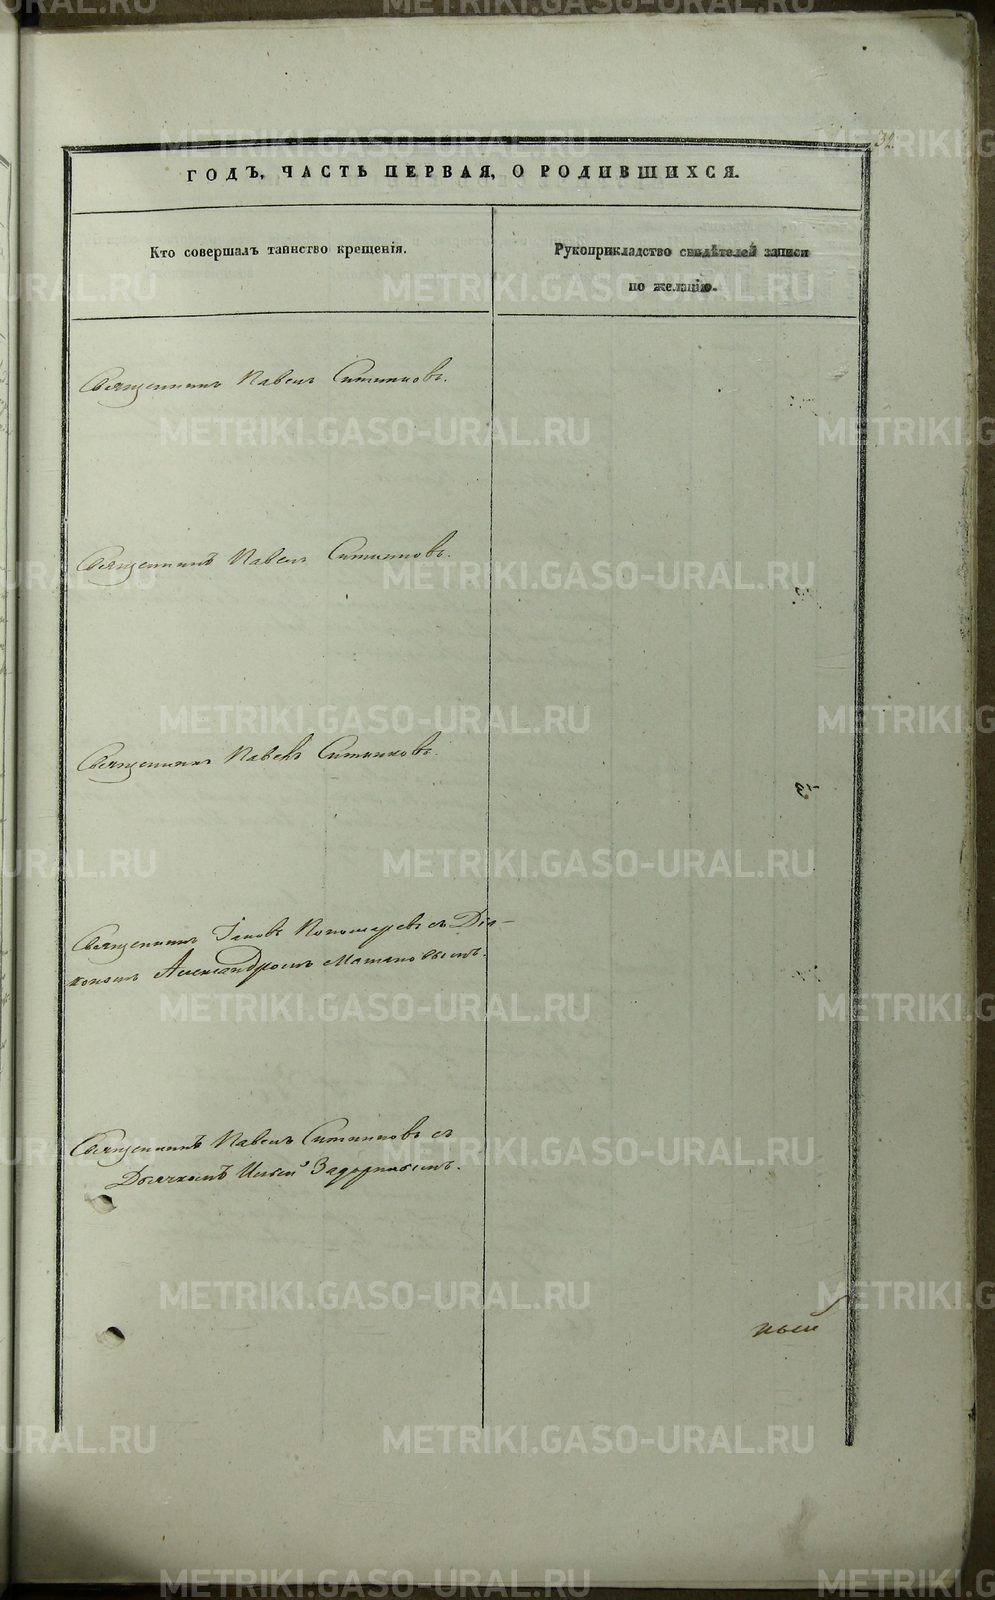 32
ГОДЪ, ЧАСТЬ ПЕРВАЯ, О РОДИВШИХСЯ.
Кто совершалъ таинство крещенія.
Рукоприкладство свидѣтелей записи
по желанію.
Священникъ Павелъ Ситниковъ.
Священникъ Павелъ Ситниковъ.
Священникъ Павелъ Ситниковъ.
Священникъ Іаковъ Пономаревъ съ Діа-
кономъ Александромъ
Священникъ Павелъ Ситниковъ съ
Дьячкомъ Ильей Задорнымъ.
ный
METRIKI.GASO-URAL.RU